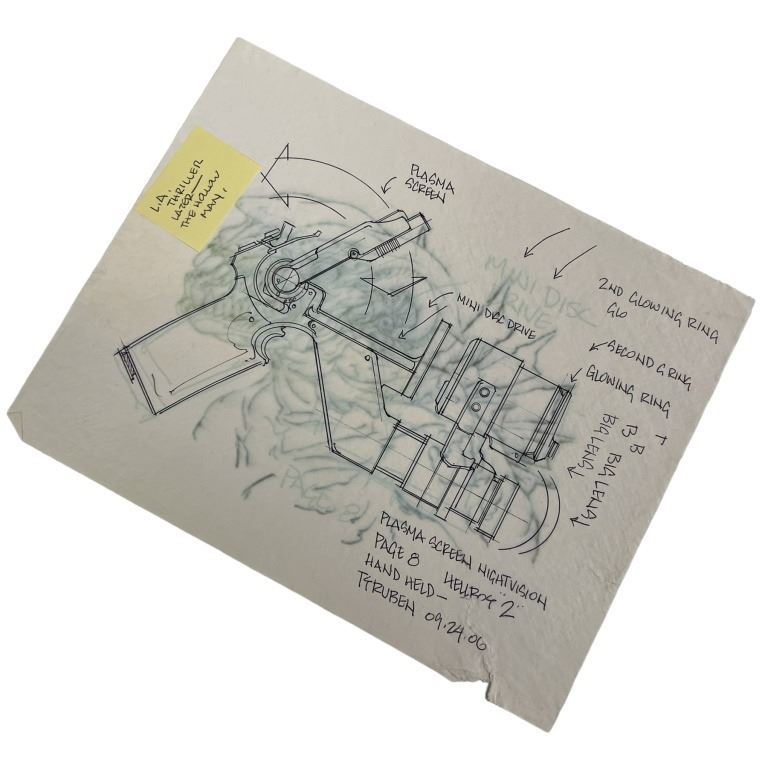 L.A.
THRILLER
LATER—
THE HOLLOW
MAN.
PLASMA
SCREEN
MINI DISC
DRIVE
MINI DISC DRIVE
2ND GLOWING RING
GLO
SECOND G RING
GLOWING RING
B B
BIG LENS
BIG LENS
PAGE 8
PLASMA SCREEN NIGHTVISION
PAGE 8 HELLBOY "2"
HAND HELD—
TYRUBEN 09.24.06